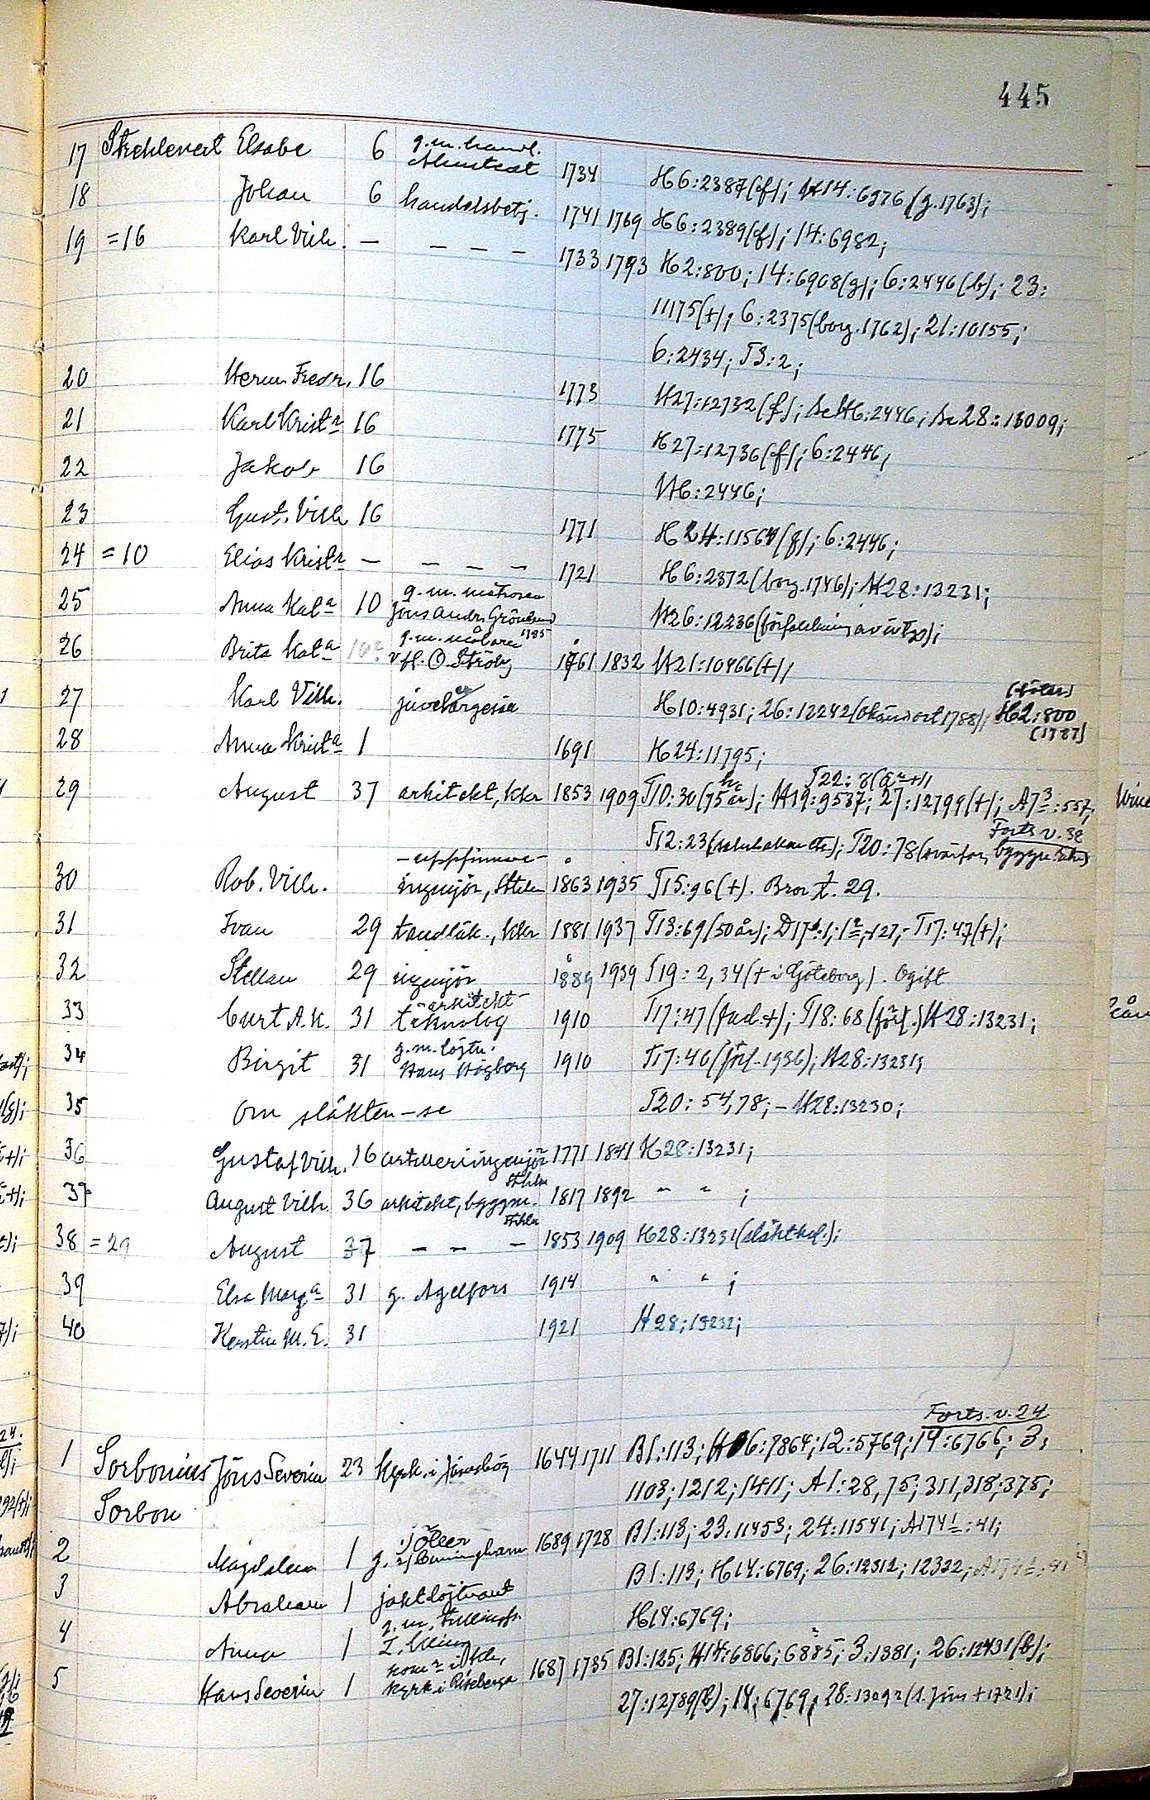 445
17 Strehlenert Elsabe 6 g.m. handl. Almstedt 1734 H6:2387(f); H14:6976 (g.1763);
18 Johan 6 handelsbetj. 1741 1769 H6:2389(f); 14:6982;
19 =16 Karl Vilh. — — — — 1733 1793 H2:800; 14:6908(g); 6:2446(b); 23:
11175(+); 6:2375(borg.1762); 21:10155;
6:2434; T3:2;
20 Herm. Fredr. 16 1773 H27:12732(f); H6:2446; 28:13009;
21 Karl Kristn 16 1775 H27:12736(f); 6:2446;
22 Jakob 16 H6:2446;
23 Gust. Vilh. 16 1771 H24:11567(f); 6:2446;
24 =10 Elias Kristn — — — — — 1721 H6:2372(borg.1746); H28:13231;
25 Anna Kata 10 g.m. matrosen Jöns Andr. Grönlund 1785 H26:12236
26 Brita Kata g.m. målaren O. Ströby 1761 1832 H21:10466(+);
27 Karl Vilh. H10:4931; 26:12242(okänd ort 1788); H2:800 (1787)
28 Anna Krista 1 1691 H24:11795;
29 August 37 arkitekt, 1853 1909 T10:30(75 år); H19:9537; 27:12799(+); A73:557; T22:8
T12:23; T20:78 Forts v. 38
30 Rob. Vilh. -uppfinnare- ingenjör, Sthlm 1863 1935 T15:96(+). Bror t. 29.
31 Ivan 29 tandläk., 1881 1937 T13:69(50 år); T17:47(+);
32 Stellan 29 ingenjör 1889 1939 T19:2,34(+ i Göteborg). Ogift
33 Curt A.K. 31 -arkitekt- teknolog 1910 T17:47(fad.+); T18:68(förl.) H28:13231;
34 Birgit 31 g.m. löjtn. Hans Högborg 1910 T17:46(förl. 1936); H28:13231;
35 Om släkten – se T20:54,78; – H28:13230;
36 Gustaf Vilh. 16 artilleriingenjör Sthlm 1771 1841 H28:13231;
37 August Vilh. 36 arkitekt, byggm. Sthlm 1817 1892 " " ;
38 =29 August 37 — — — 1853 1909 H28:13231(släktkal.);
39 Elsa Marga 31 g. Agelfors 1914 " " ;
40 Kerstin M.E. 31 1921 H28:13232;
Forts. v. 24
1 Sorbonius Jöns Severin 23 Kyrk. i 1644 1711 B1:113; H6:7864; 12:5769; 14:6766; 3:
Sorbon 1103; 1212; 1411; A1:28,75; 311,318; 375;
2 Magdalena 1 g. 1) Öller 2) Cunningham 1689 1728 B1:113; 23:11453; 24:11541; A1741:41;
3 Abraham 1 jaktlöjtnant B1:113; H14:6769; 26:12312; 12322; A1741:41
4 Anna 1 H14:6769;
5 Hans Severin 1 kyrk. i Riseberga 1687 1735 B1:125; H14:6866; 6885; 3:1381; 26:12431(b);
27:12789(b); 14:6769; 28:13092(s. Jöns +1721);